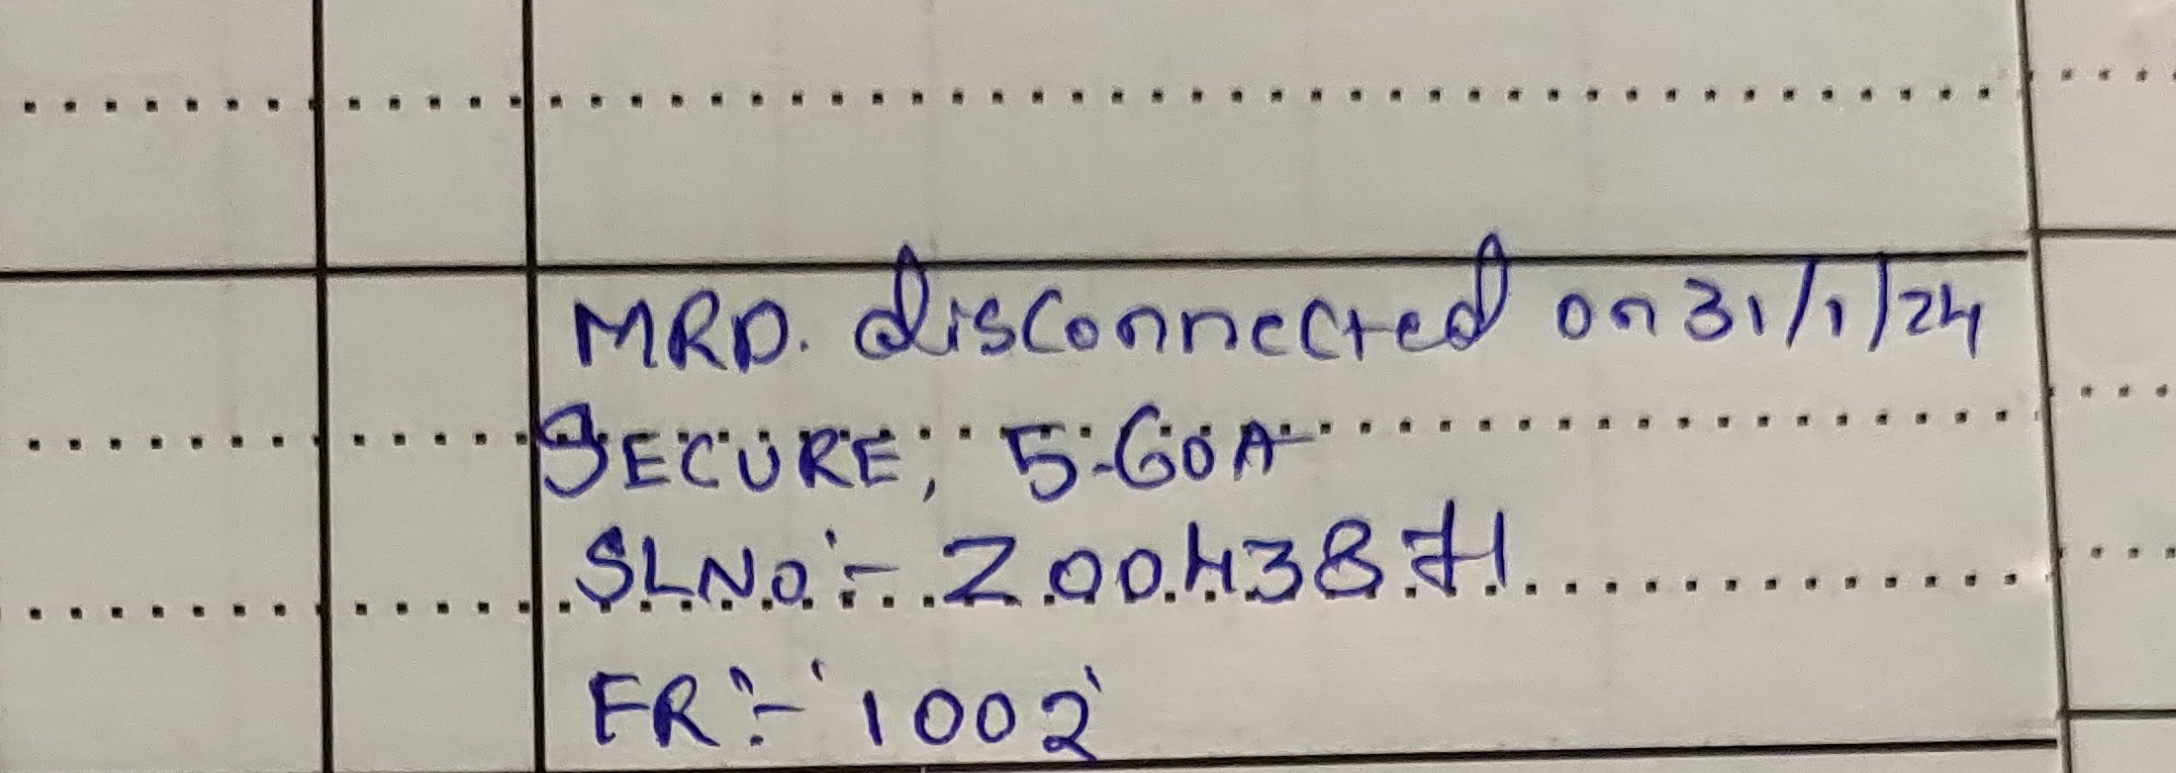 MRD. disconnected on 31/1/24
SECURE, 5-60A
SLNO:- Z0043871
FR:- '1002'